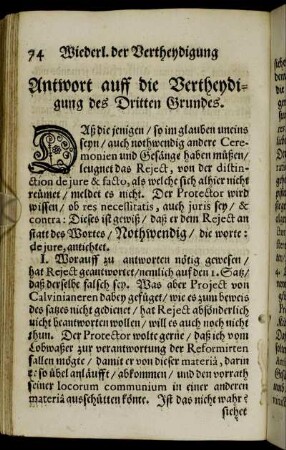 74 Wiederl. der Vertheydigung
Antwort auff die Vertheydi-
gung des Dritten Grundes.
Daß die jenigen / so im glauben uneins
seyn / auch nothwendig andere Cere-
monien und Gesänge haben müßen /
leugnet das Reject, von der distin-
ction de jure & facto, als welche sich alhier nicht
reümet / meldet es nicht. Der Protector wird
wissen / ob res necessitatis, auch juris sey / &
contra: Dieses ist gewiß / daß er dem Reject an
statt des Wortes / Nothwendig / die worte:
de jure, antichtet.
I. Worauff zu antworten nötig gewesen /
hat Reject geantwortet / nemlich auff den 1. Satz /
daß derselbe falsch sey. Was aber Project von
Calvinianeren dabey gefüget / wie es zum beweis
des satzes nicht gedienet / hat Reject absönderlich
nicht beantworten wollen / will es auch noch nicht
thun. Der Protector wolte gerne / daß ich vom
Lobwaßer zur verantwortung der Reformirten
fallen mögte / damit er von dieser materiâ, darin
er so übel anläufft / abkommen / und den vorrath
seiner locorum communium in einer anderen
materiâ ausschütten könte. Ist das nicht wahr?
siehet